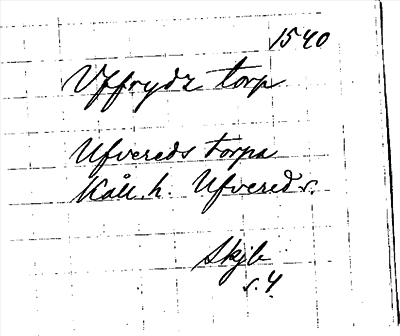 1540
Vffrydz torp
Ufvereds torpa
Kåll. h. Ufvereds.
Skjb
s. 4.